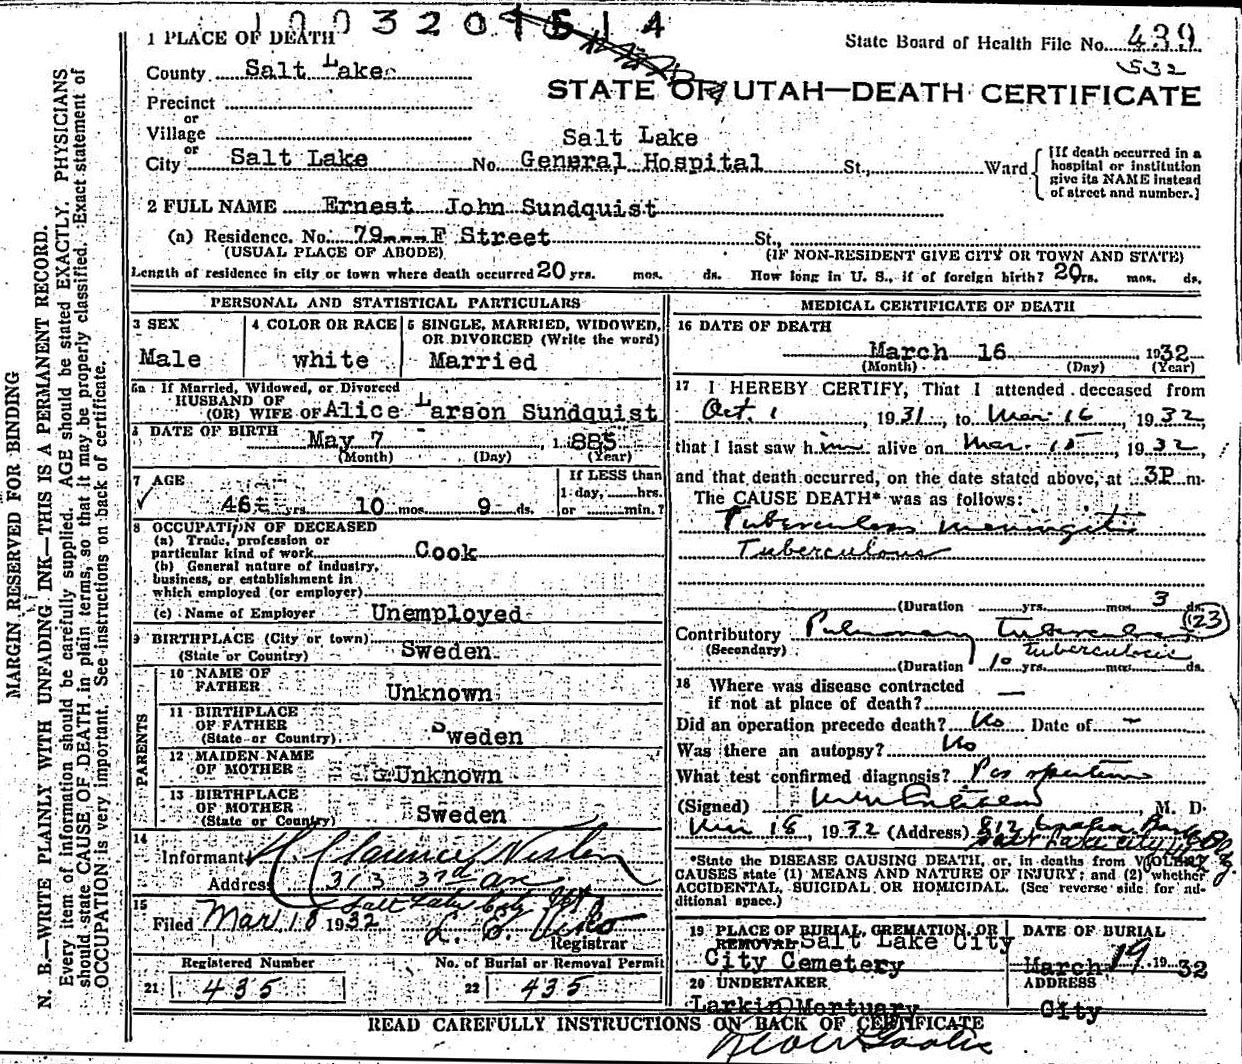 1003201514
State Board of Health File No. 439
532
1 PLACE OF DEATH
County Salt Lake
STATE OF UTAH—DEATH CERTIFICATE
Precinct
or
Village
or
City Salt Lake No. Salt Lake General Hospital St., Ward
[If death occurred in a hospital or institution give its NAME instead of street and number.]
2 FULL NAME Ernest John Sundquist
(a) Residence. No. 79 F Street St.,
(USUAL PLACE OF ABODE) (IF NON-RESIDENT GIVE CITY OR TOWN AND STATE)
Length of residence in city or town where death occurred 20 yrs. mos. ds. How long in U. S., if of foreign birth? 20 yrs. mos. ds.
PERSONAL AND STATISTICAL PARTICULARS
3 SEX
Male
4 COLOR OR RACE
white
5 SINGLE, MARRIED, WIDOWED, OR DIVORCED (Write the word)
Married
5a If Married, Widowed, or Divorced
HUSBAND OF
(OR) WIFE OF Alice Larson Sundquist
6 DATE OF BIRTH
May 7 1885
(Month) (Day) (Year)
7 AGE
46 yrs. 10 mos. 9 ds.
If LESS than
1 day, hrs.
or min.?
8 OCCUPATION OF DECEASED
(a) Trade, profession or
particular kind of work Cook
(b) General nature of industry,
business, or establishment in
which employed (or employer)
(c) Name of Employer Unemployed
9 BIRTHPLACE (City or town)
(State or Country) Sweden
PARENTS
10 NAME OF
FATHER Unknown
11 BIRTHPLACE
OF FATHER
(State or Country) Sweden
12 MAIDEN NAME
OF MOTHER Unknown
13 BIRTHPLACE
OF MOTHER
(State or Country) Sweden
14
Informant
Address 313 3rd Ave
Salt Lake City
15
Filed Mar 18 1932
Registrar
Registered Number
21 435
No. of Burial or Removal Permit
22 435
MEDICAL CERTIFICATE OF DEATH
16 DATE OF DEATH
March 16 1932
(Month) (Day) (Year)
17 I HEREBY CERTIFY, That I attended deceased from
Oct. 1, 1931, to Mar. 16, 1932,
that I last saw him alive on Mar 15, 1932,
and that death occurred, on the date stated above, at 3P m.
The CAUSE DEATH* was as follows:
Tuberculous meningitis
Tuberculous
(Duration yrs. mos. 3 ds.
123
Contributory Pulmonary Tuberculosis
(Secondary) Tuberculosis
(Duration 10 yrs. mos. ds.
18 Where was disease contracted
if not at place of death? —
Did an operation precede death? No Date of –
Was there an autopsy? No
What test confirmed diagnosis? Pos sputum
(Signed) M. D.
Mar 18, 1932 (Address) 812
Salt Lake City
*State the DISEASE CAUSING DEATH, or, in deaths from VIOLENT
CAUSES state (1) MEANS AND NATURE OF INJURY; and (2) whether
ACCIDENTAL, SUICIDAL OR HOMICIDAL. (See reverse side for ad-
ditional space.)
19 PLACE OF BURIAL, CREMATION, OR
REMOVAL Salt Lake City
City Cemetery
DATE OF BURIAL
March 19 1932
20 UNDERTAKER
Larkin Mortuary
ADDRESS
City
READ CAREFULLY INSTRUCTIONS ON BACK OF CERTIFICATE
MARGIN RESERVED FOR BINDING
N. B.—WRITE PLAINLY WITH UNFADING INK—THIS IS A PERMANENT RECORD.
Every item of information should be carefully supplied. AGE should be stated EXACTLY. PHYSICIANS
should state CAUSE OF DEATH in plain terms, so that it may be properly classified. Exact statement of
OCCUPATION is very important. See instructions on back of certificate.